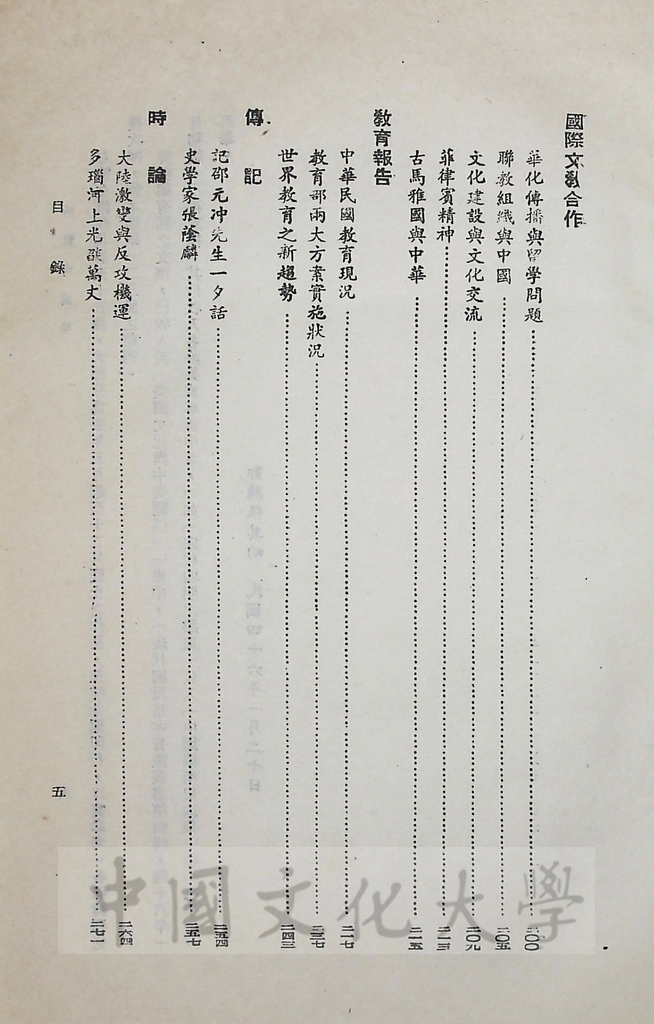 國際文教合作
華化傳播與留學問題……二〇〇
聯教組織與中國……二〇五
文化建設與文化交流……二〇九
菲律賓精神……二一三
古馬雅國與中華……二一五
教育報告
中華民國教育現況……二一七
教育部兩大方案實施狀況……二三七
世界教育之新趨勢……二四三
傳記
記邵元冲先生一夕話……二五四
史學家張蔭麟……二五七
時論
大陸激變與反攻機運……二六四
多瑙河上光燄萬丈……二七一
目錄
五
中國文化大學